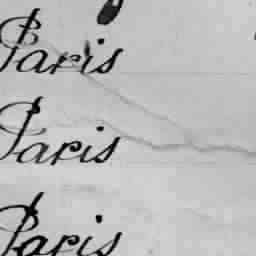 Paris
Paris
Paris